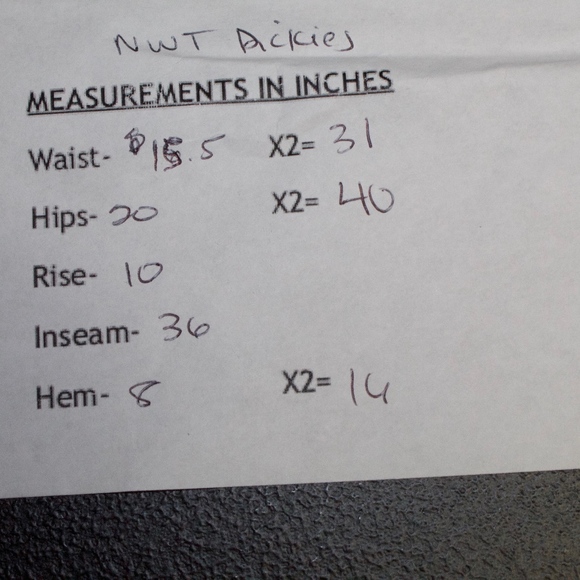 NWT Dickies
MEASUREMENTS IN INCHES
Waist- 15.5 X2= 31
Hips- 20 X2= 40
Rise- 10
Inseam- 36
Hem- 8 X2= 16